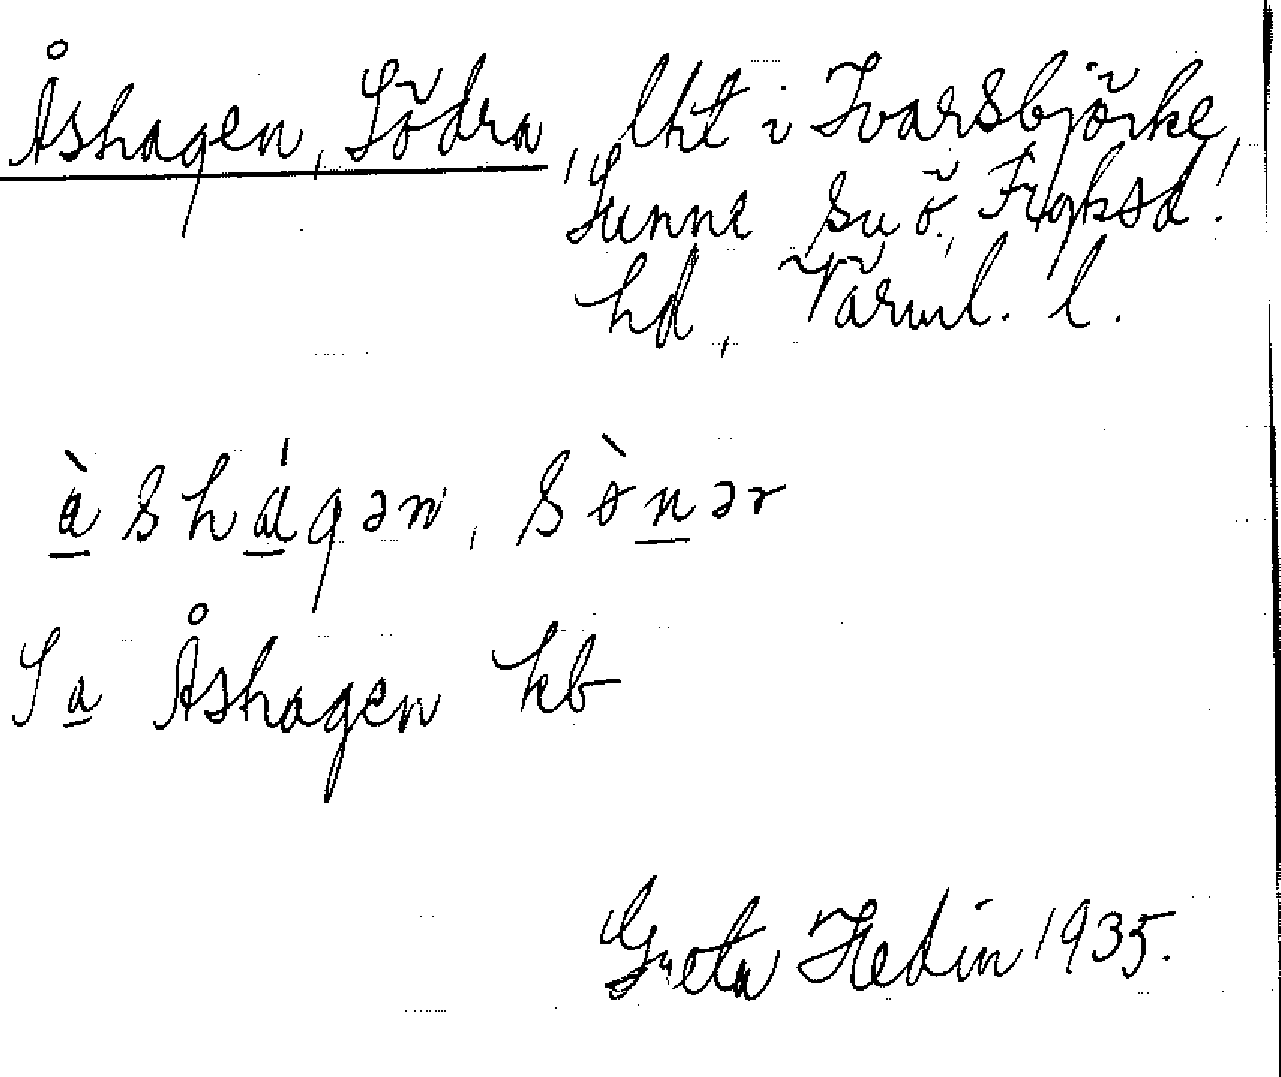 Åshagen, Södra, lht i Ivarsbjörke,
Sunne sn ö, Fryksd!
hd, Värml. l.
à s h á g ə n, s ò n ə r
S a Åshagen kb
Greta Hedin 1935.